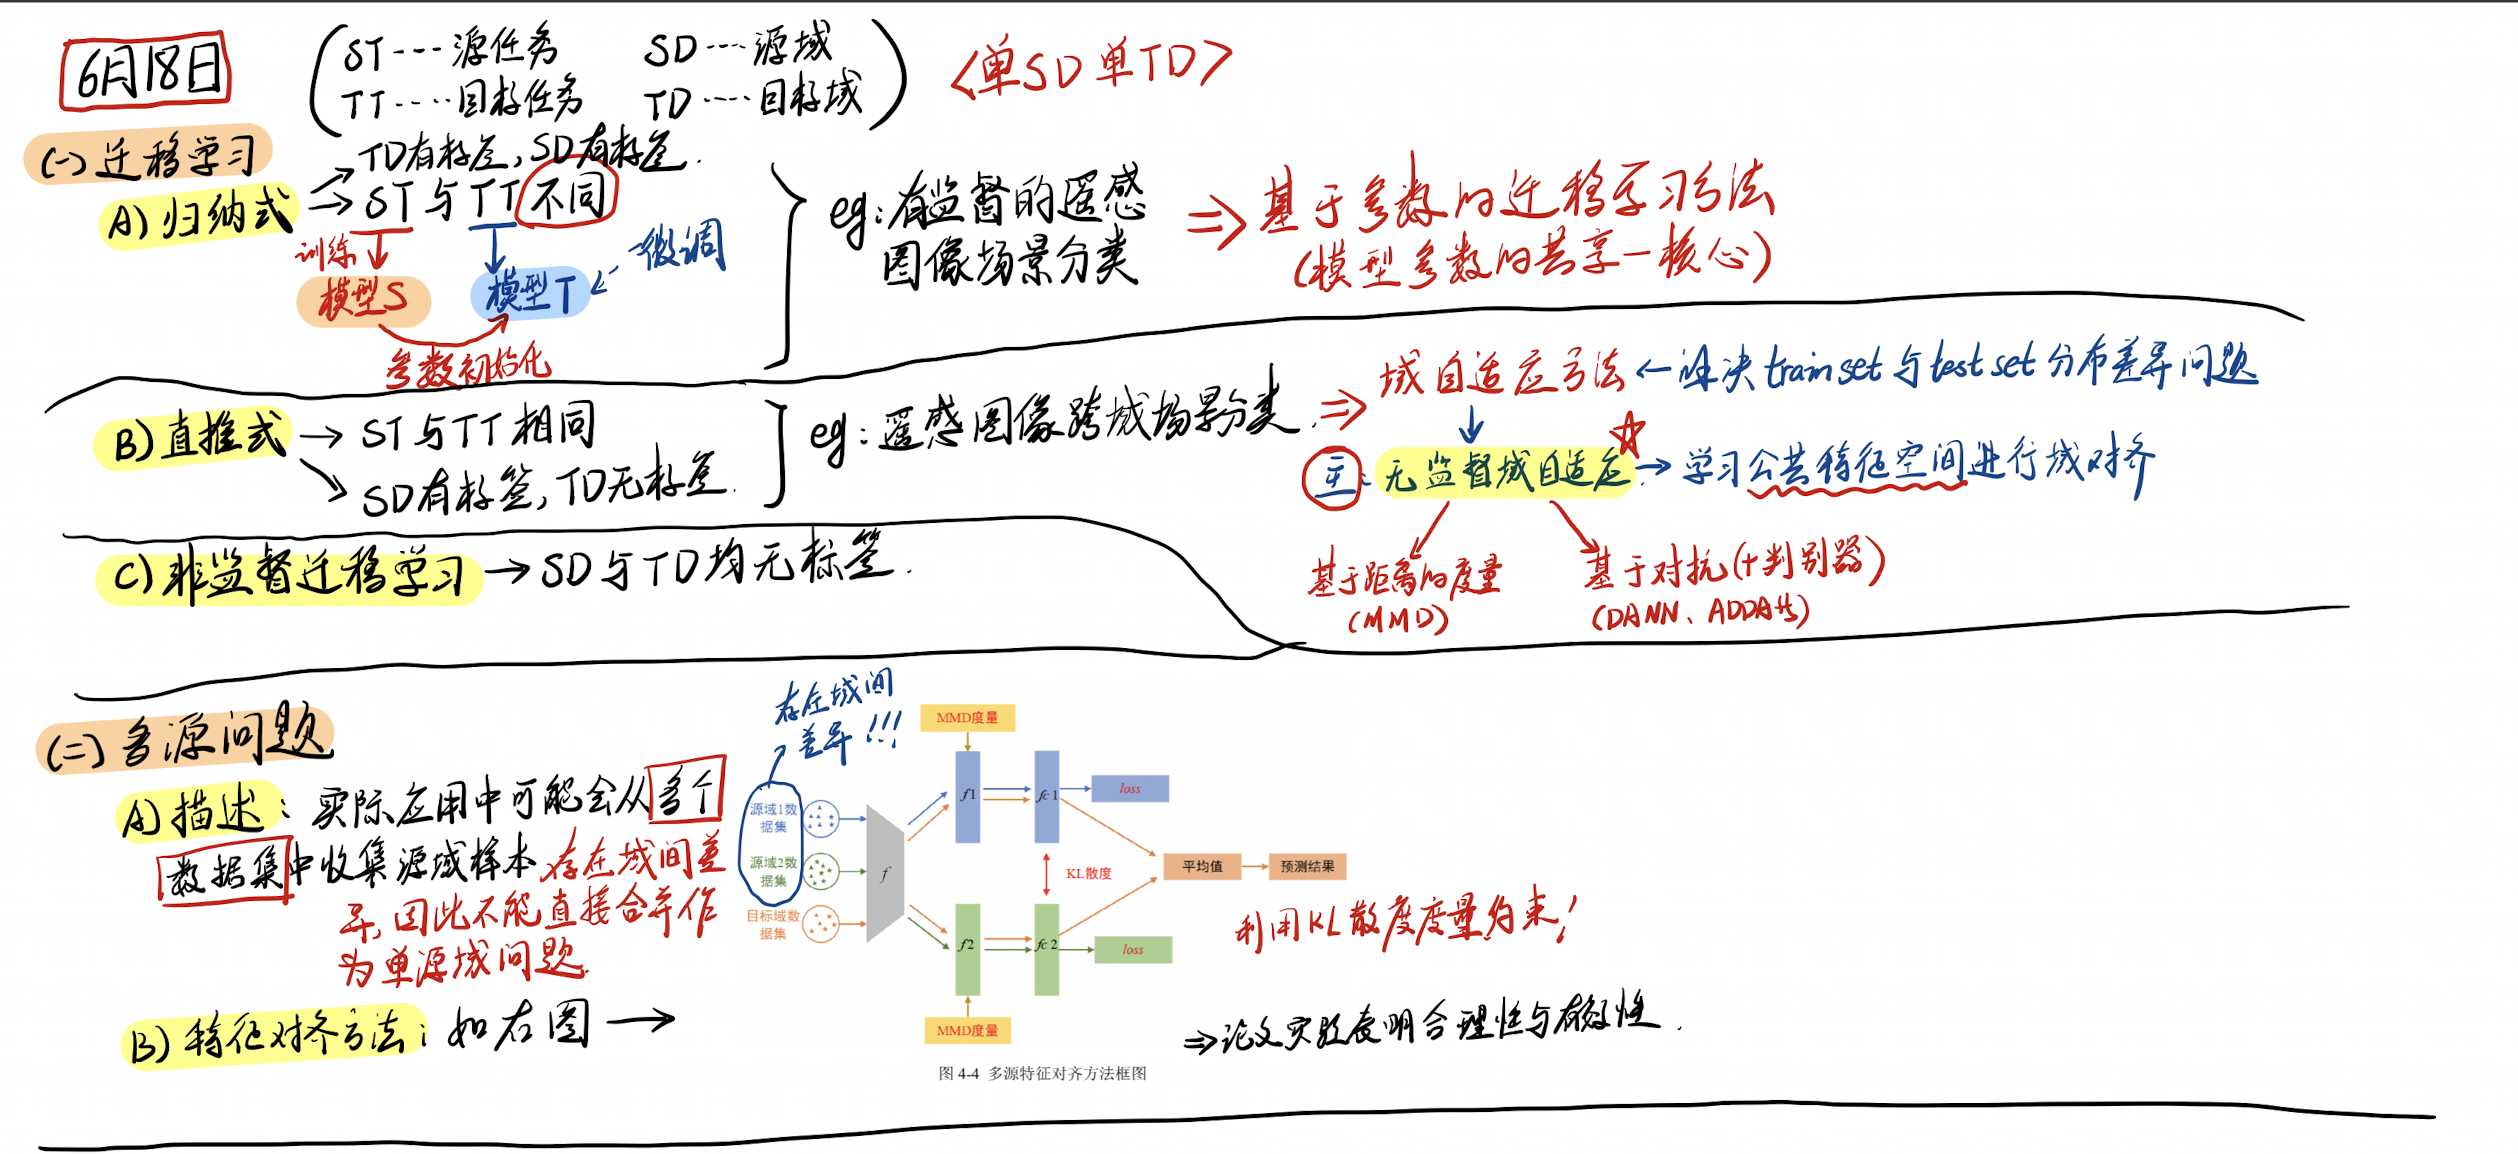 6月18日
ST---源任务 SD---源域
TT----目标任务 TD----目标域
<单SD单TD>
(一)迁移学习
TD有标签,SD有标签.
A)归纳式
ST与TT不同
训练
微调
模型S
模型T
参数初始化
eg:有监督的遥感
图像场景分类
⇒基于参数的迁移学习方法
(模型参数的共享-核心)
B)直推式→ST与TT相同
SD有标签,TD无标签.
eg:遥感图像跨域场景分类.
⇒域自适应方法←解决train set与test set分布差异问题
主:无监督域自适应→学习公共特征空间进行域对齐
基于距离的度量
(MMD)
基于对抗(+判别器)
(DANN、ADDA等)
C)非监督迁移学习→SD与TD均无标签.
(二)多源问题
A)描述:实际应用中可能会从多个
数据集中收集源域样本存在域间差
异,因此不能直接合并作
为单源域问题.
B)特征对齐方法:如右图→
存在域间
差异!!!
MMD度量
源域1数
据集
源域2数
据集
目标域数
据集
f
f1
fc1
loss
KL散度
平均值
预测结果
f2
fc2
loss
MMD度量
图 4-4 多源特征对齐方法框图
利用KL散度度量约束!
⇒论文实验表明合理性与有效性.